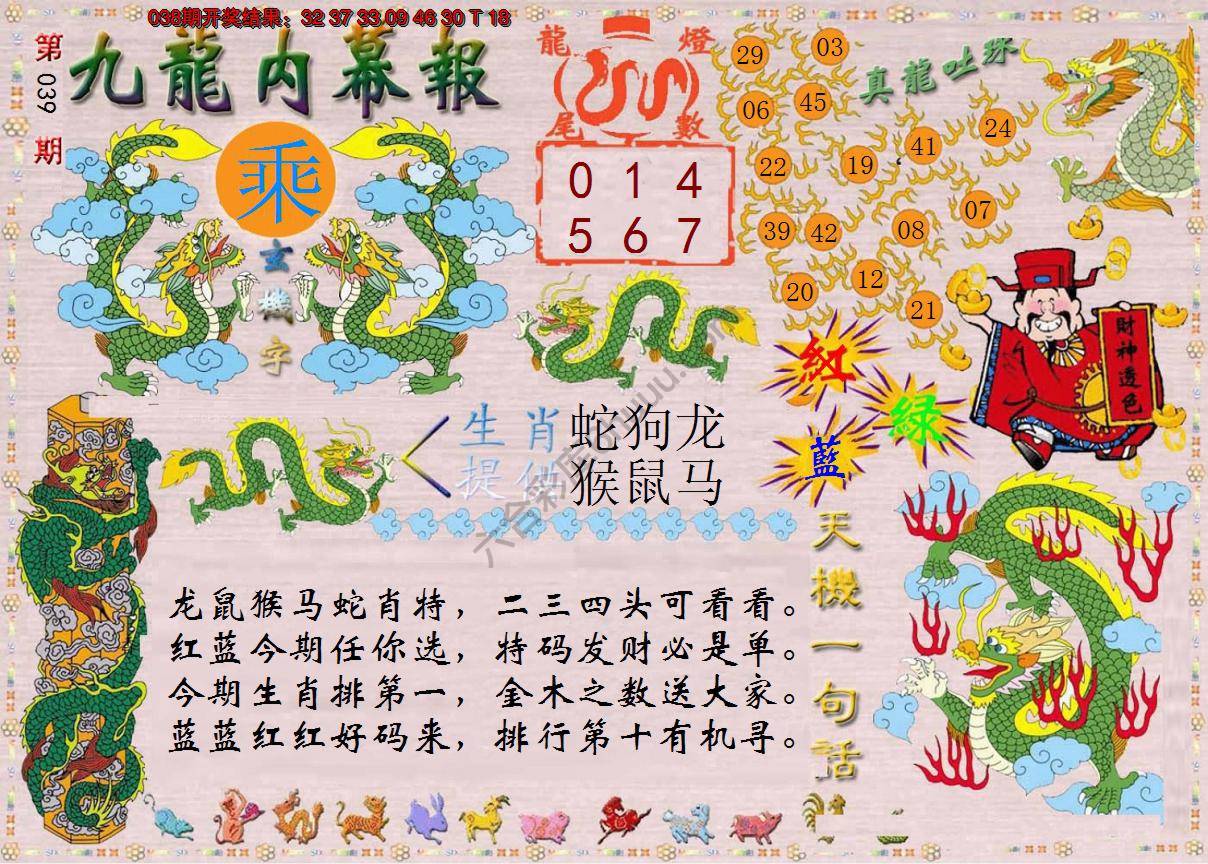 038期开奖结果：32 37 33 09 46 30 T 18
第039期
九龍内幕報
乘
玄機字
龍燈
尾數
0 1 4
5 6 7
29
03
06
45
真龍吐珠
22
19
41
24
39
42
08
07
20
12
21
紅
綠
藍
財神透色
生肖 蛇狗龙
提供 猴鼠马
天機一句話
龙鼠猴马蛇肖特，二三四头可看看。
红蓝今期任你选，特码发财必是单。
今期生肖排第一，金木之数送大家。
蓝蓝红红好码来，排行第十有机寻。